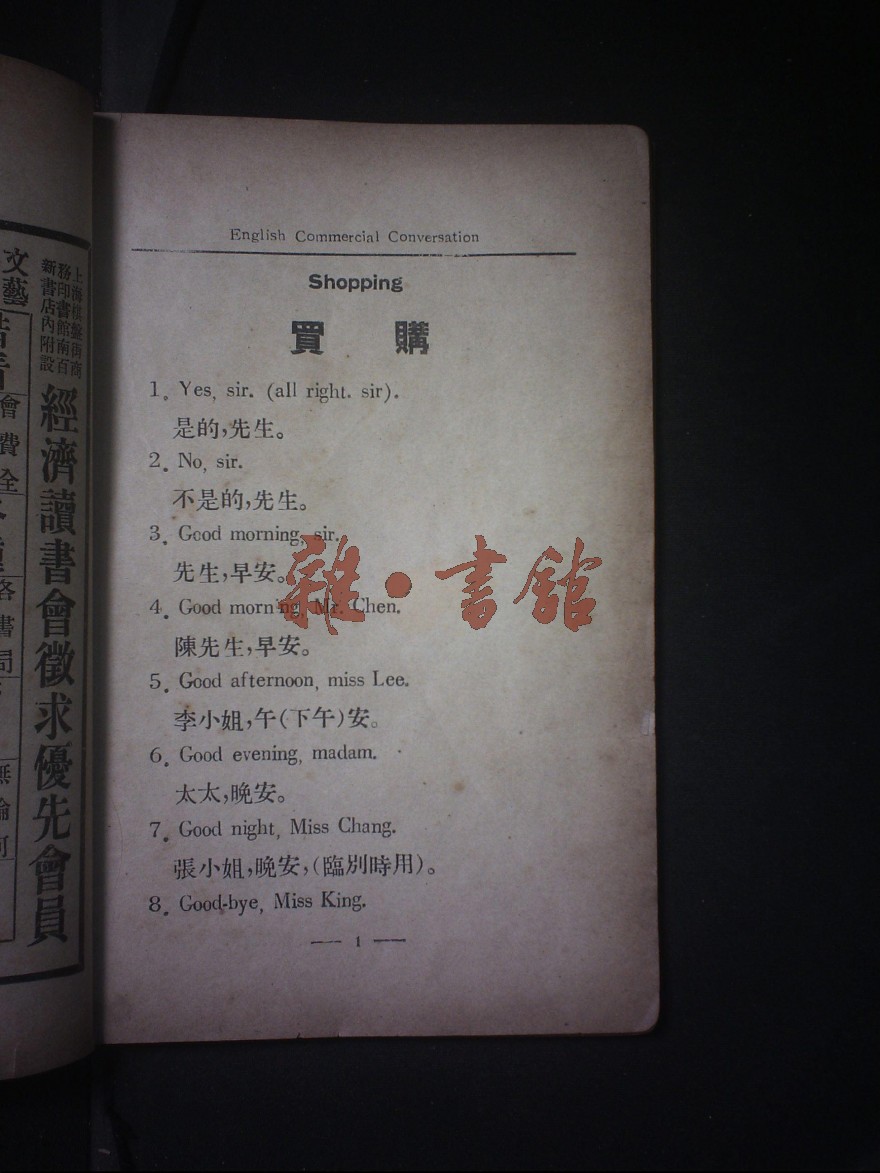 English Commercial Conversation
Shopping
買 購
1. Yes, sir. (all right. sir).
是的,先生。
2. No, sir.
不是的,先生。
3. Good morning, sir.
先生,早安。
4. Good morning, Mr. Chen.
陳先生,早安。
5. Good afternoon, miss Lee.
李小姐,午(下午)安。
6. Good evening, madam.
太太,晚安。
7. Good night, Miss Chang.
張小姐,晚安,(臨別時用)。
8. Good-bye, Miss King.
— 1 —
雜·書館
上海棋盤街商
務印書館南百
新書店內附設
經濟讀書會徵求優先會員
文藝
會費全